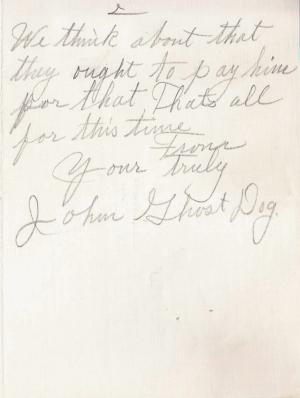 2
We think about that
they ought to pay him
for that, Thats all
for this time
From
Your truly
John Ghost Dog.